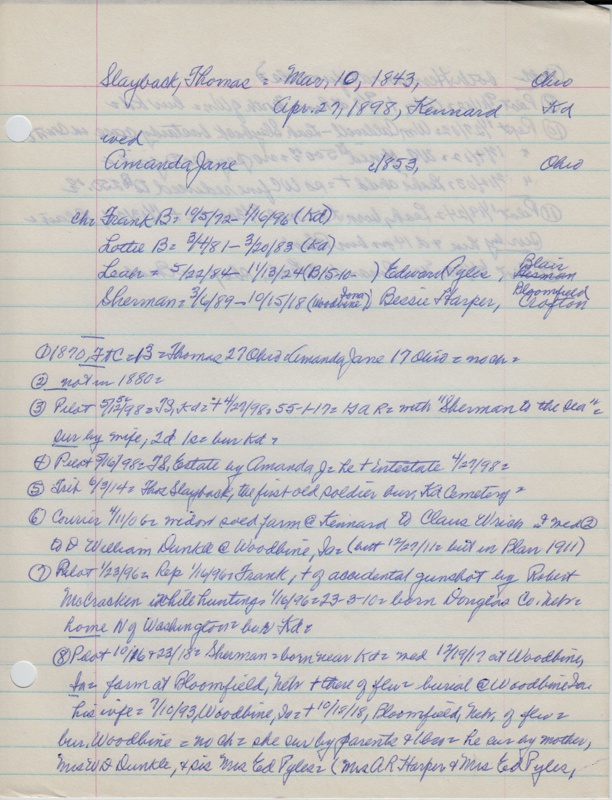 Slayback, Thomas = Mar, 10, 1843, Ohio
Apr. 27, 1898, Kennard Kd
wed
Amanda Jane c/1853, Ohio
chr Frank B = 10/5/72 - 1/16/96 (Kd)
Lottie B = 3/4/81 - 3/20/83 (Kd)
Leah = 5/22/84 - 11/13/24 (B15-10- ) Edward Pyles, Blair Herman
Sherman = 3/6/89 - 10/15/18 (Woodbine, Iowa) Bessie Harper, Bloomfield Crofton
① 1870, Ft C = 13 = Thomas 27 Ohio = Amanda Jane 17 Ohio = no ch =
② not in 1880 =
③ Pilot 5/12/98 = TS, Kd = + 4/27/98 = 55-1-17 = GAR = with "Sherman to the Sea" =
sur by wife, 2d 1s = bur Kd =
④ Pilot 5/16/98 = TS, Estate by Amanda J = he + intestate 4/27/98 =
⑤ Trib 6/3/14 = Thos Slayback, the first old soldier bur, Kd Cemetery =
⑥ Courier 4/11/06 = widow sold farm @ Kennard to Claus Wrich = I wed ②
to D William Dunkle @ Woodbine, Ia = (but 12/27/11 = bilt in Blair 1911)
⑦ Pilot 1/23/96 = Rep 1/16/96 = Frank, + of accidental gunshot by Robert
McCracken while hunting = 1/16/96 = 23-3-10 = born Douglas Co. Nebr =
home N of Washington = bur Kd =
⑧ Pilot 10/16 & 23/18 = Sherman = born near Kd = wed 12/19/17 at Woodbine,
Ia = farm at Bloomfield, Nebr + there of flu = burial @ Woodbine Ia =
his wife = 7/10/93, Woodbine, Ia = + 10/15/18, Bloomfield, Nebr, of flu =
bur, Woodbine = no ch = she sur by parents & = he sur by mother,
Mrs W D Dunkle, & sis Mrs Ed Pyles = (Mrs A R Harper & Mrs Ed Pyles,